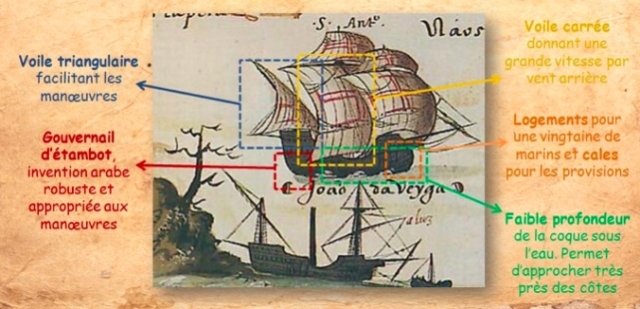 Voile triangulaire
facilitant les
manœuvres
Gouvernail
d'étambot,
invention arabe
robuste et
appropriée aux
manœuvres
S. Antº.
Náos
João da Veyga
a luz
Voile carrée
donnant une
grande vitesse par
vent arrière
Logements pour
une vingtaine de
marins et cales
pour les provisions
Faible profondeur
de la coque sous
l'eau. Permet
d'approcher très
près des côtes